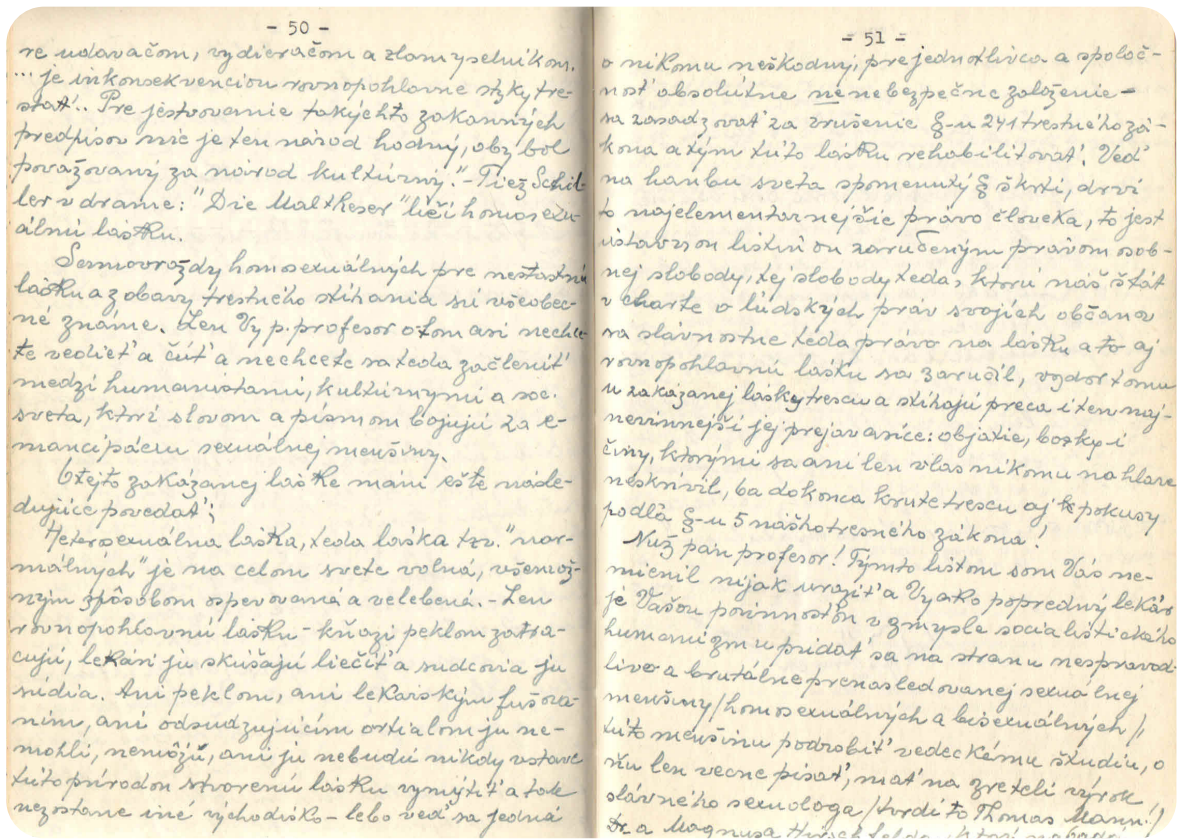 - 50 -
re udavačom, vydieračom a zlomyselníkom.
... je inkonsekvenciou rovnopohlavne styky tre-
stať.. Pre jestvovanie takýchto zákonných
predpisov nic je ten národ hodný, aby bol
považovaný za národ kultúrny."- Tiež Schil-
ler v drame: "Die Maltheser" líči homosexu-
álnu lásku.
Samovraždy homosexuálných pre nešťastnú
lásku a z obavy trestného stíhania sú všeobec-
né známe. Len Vy p. profesor o tom ani nechce-
te vedieť a čúť a nechcete sa teda začleniť
medzi humanistami, kultúrnymi a soc.
sveta, ktrí slovom a písmom bojujú za e-
mancipáciu sexuálnej menšiny.
O tejto zakázanej láske mám ešte násle-
dujúce povedať:
Heterosexuálna láska, teda láska tzv. "nor-
málných" je na celom svete volná, všemož-
ným spôsobom ospevovaná a velebená.- Len
rovnopohlavnú lásku - kňazi peklom zatra-
cujú, lekári ju skúšajú liečiť a sudcovia ju
súdia. Ani peklom, ani lekárským fušova-
ním, ani odsudzujúcim ortialom ju ne-
mohli, nemôžú, ani ju nebudú nikdy vstave
túto prírodou stvorenú lásku vymýtiť a tak
nezostane iné východisko - lebo veď sa jedná
- 51 -
o nikomu neškodný, pre jednotlivca a spoloč-
nosť absolútne nenebezpečne založenie -
sa zasadzovať za zrušenie §-u 241 trestného zá-
kona a tým túto lásku rehabilitovať. Veď
na hanbu sveta spomenutý § škrtí, drví
to najelementarnejšie právo človeka, to jest
ústavnou listinou zaručeným právom osob-
nej slobody, tej slobody teda, ktorú náš štát
v charte o ľudských práv svojích občanov
sa slávnostne teda právo na lásku a to aj
rovnopohlavnú lásku sa zaručil, vzdor tomu
u zakázanej lásky trescu a stíhajú preca i ten naj-
nevinnejší jej prejav a síce: objatie, bozky i
činy, ktorými sa ani len vlas nikomu na hlave
neskrivil, ba dokonca krute trescu aj pokusy
podľa §-u 5 nášho tresného zákona!
Nuž pán profesor! Týmto listom som Vás ne-
mienil nijak uraziť a Vy ako popredný lekár
je Vašou povinnosťou v zmysle socialistického
humanizmu pridať sa na stranu nespravod-
livo a brutálne prenasledovanej sexuálnej
menšiny /homosexuálných a bisexuálných/,
túto menšinu podrobiť vedeckému štúdiu, o
ňu len vecne písať, mať na zreteli výrok
slávného sexuologa /tvrdí to Thomas Mann!/
Dr. a Magnusa Hirschfelda,